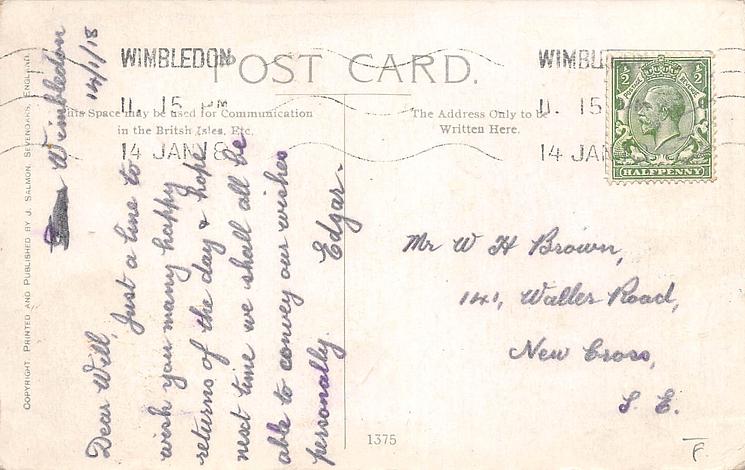 POST CARD.
This Space may be used for Communication
in the British Isles, Etc.
The Address Only to be
Written Here.
WIMBLEDON
11. 15 PM
14 JAN 18
WIMBL
11. 15
14 JAN
½ ½
HALFPENNY
COPYRIGHT. PRINTED AND PUBLISHED BY J. SALMON, SEVENOAKS, ENGLAND.
Wimbledon
14/1/18
Dear Will,
Just a line to
wish you many happy
returns of the day & hope
next time we shall all be
able to convey our wishes
personally. Edgar.
Mr W H Brown,
141, Waller Road,
New Cross,
S. E.
1375
F